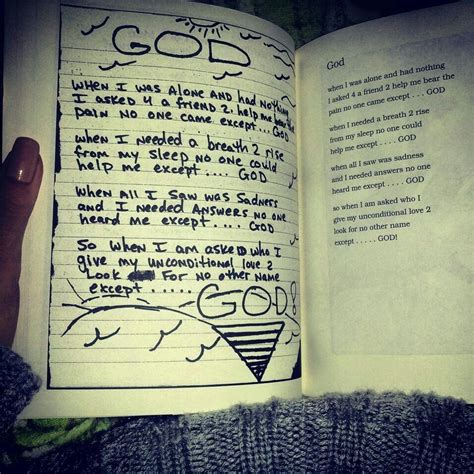 GOD
WHEN I WAS ALONE AND HAD NOTHING
I ASKED 4 A FRIEND 2 HELP ME BEAR THE
PAIN NO ONE CAME EXCEPT... GOD
WHEN I NEEDED A BREATH 2 RISE
FROM MY SLEEP NO ONE COULD
HELP ME EXCEPT.... GOD
WHEN ALL I SAW WAS SADNESS
AND I NEEDED ANSWERS NO ONE
HEARD ME EXCEPT.... GOD
SO WHEN I AM ASKED WHO I
GIVE MY UNCONDITIONAL LOVE 2
LOOK FOR NO OTHER NAME
EXCEPT.....
GOD!
God
when I was alone and had nothing
I asked 4 a friend 2 help me bear the
pain no one came except . . . . GOD
when I needed a breath 2 rise
from my sleep no one could
help me except . . . . GOD
when all I saw was sadness
and I needed answers no one
heard me except . . . . GOD
so when I am asked who I
give my unconditional love 2
look for no other name
except . . . . . GOD!